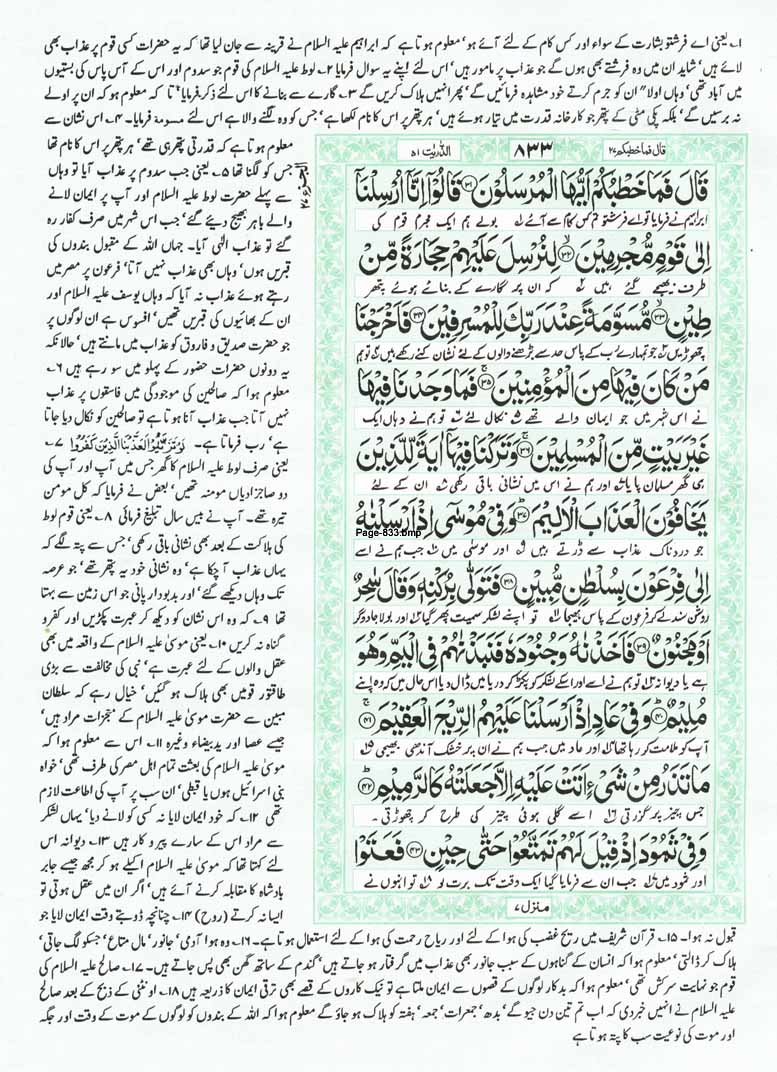 ا۔ یعنی اے فرشتو بشارت کے سواء اور کس کام کے لئے آئے ہو، معلوم ہوتا ہے کہ ابراہیم علیہ السلام نے قرینہ سے جان لیا تھا کہ یہ حضرات کسی قوم پر عذاب بھی
لائے ہیں، شاید ان میں وہ فرشتے بھی ہوں گے جو عذاب پر مامور ہیں، اس لئے اپنے یہ سوال فرمایا ۲۔ لوط علیہ السلام کی قوم جو سدوم اور اس کے آس پاس کی بستیوں
میں آباد تھی، وہاں اولا" ان کو جرم کرتے خود مشاہدہ فرمائیں گے، پھر انہیں ہلاک کریں گے ۳۔ گارے سے بنانے کا اس لئے ذکر فرمایا، تا کہ معلوم ہو کہ ان پر اولے
نہ برسیں گے، بلکہ پکی مٹی کے پتھر جو کارخانہ قدرت میں تیار ہوئے ہیں، ہر پتھر پر اس کا نام لکھا ہے، جس کو وہ لگنے والا ہے اس لئے مسومۃ فرمایا۔ ۴۔ اس نشان سے
قال فما خطبکم ۲۷
۸۳۳
الذٰریٰت ۵۱
الجزء ۲۷
قَالَ فَمَا خَطْبُكُمْ اَيُّهَا الْمُرْسَلُوْنَ ۳۱ قَالُوْٓا اِنَّآ اُرْسِلْنَآ
ابراہیم نے فرمایا تو اے فرشتو تم کس کام سے آئے بولے ہم ایک مجرم قوم کی
اِلٰى قَوْمٍ مُّجْرِمِيْنَ ۳۲ لِنُرْسِلَ عَلَيْهِمْ حِجَارَةً مِّنْ
طرف بھیجے گئے ہیں کہ ان پر گارے کے بنائے ہوئے پتھر
طِيْنٍ ۳۳ مُّسَوَّمَةً عِنْدَ رَبِّكَ لِلْمُسْرِفِيْنَ ۳۴ فَاَخْرَجْنَا
چھوڑیں جو تمہارے رب کے پاس حد سے بڑھنے والوں کے لئے نشان کئے رکھے ہیں تو ہم
مَنْ كَانَ فِيْهَا مِنَ الْمُؤْمِنِيْنَ ۳۵ فَمَا وَجَدْنَا فِيْهَا
نے اس شہر میں جو ایمان والے تھے نکال لئے تو ہم نے وہاں ایک
غَيْرَ بَيْتٍ مِّنَ الْمُسْلِمِيْنَ ۳۶ وَتَرَكْنَا فِيْهَآ اٰيَةً لِّلَّذِيْنَ
ہی گھر مسلمان پایا اور ہم نے اس میں نشانی باقی رکھی ان کے لئے
يَخَافُوْنَ الْعَذَابَ الْاَلِيْمَ ۳۷ وَفِيْ مُوْسٰٓى اِذْ اَرْسَلْنٰهُ
Page-833.bmp
جو دردناک عذاب سے ڈرتے ہیں اور موسیٰ میں جب ہم نے اسے
اِلٰى فِرْعَوْنَ بِسُلْطٰنٍ مُّبِيْنٍ ۳۸ فَتَوَلّٰى بِرُكْنِهٖ وَقَالَ سٰحِرٌ
روشن سند لے کر فرعون کے پاس بھیجا تو اپنے لشکر سمیت پھر گیا اور بولا جادوگر
اَوْ مَجْنُوْنٌ ۳۹ فَاَخَذْنٰهُ وَجُنُوْدَهٗ فَنَبَذْنٰهُمْ فِي الْيَمِّ وَهُوَ
ہے یا دیوانہ تو ہم نے اسے اور اسکے لشکر کو پکڑ کر دریا میں ڈال دیا اس حال میں کہ وہ اپنے
مُلِيْمٌ ۴۰ وَفِيْ عَادٍ اِذْ اَرْسَلْنَا عَلَيْهِمُ الرِّيْحَ الْعَقِيْمَ ۴۱
آپ کو ملامت کر رہا تھا اور عاد میں جب ہم نے ان پر خشک آندھی بھیجی
مَا تَذَرُ مِنْ شَيْءٍ اَتَتْ عَلَيْهِ اِلَّا جَعَلَتْهُ كَالرَّمِيْمِ ۴۲
جس چیز پر گزرتی اسے گلی ہوئی چیز کی طرح کر چھوڑتی۔
وَفِيْ ثَمُوْدَ اِذْ قِيْلَ لَهُمْ تَمَتَّعُوْا حَتّٰى حِيْنٍ ۴۳ فَعَتَوْا
اور ثمود میں جب ان سے فرمایا گیا ایک وقت تک برت لو تو انہوں نے
منزل ۷
معلوم ہوتا ہے کہ قدرتی پتھر ہی تھے، ہر پتھر پر اس کا نام تھا
جس کو لگنا تھا ۵۔ یعنی جب سدوم پر عذاب آیا تو وہاں
سے پہلے حضرت لوط علیہ السلام اور آپ پر ایمان لانے
والے باہر بھیج دیئے گئے، جب اس شہر میں صرف کفار رہ
گئے تو عذاب الٰہی آیا۔ جہاں اللہ کے مقبول بندوں کی
قبریں ہوں، وہاں بھی عذاب نہیں آتا، فرعون پر مصر میں
رہتے ہوئے عذاب نہ آیا کہ وہاں یوسف علیہ السلام اور
ان کے بھائیوں کی قبریں تھیں، افسوس ہے ان لوگوں پر
جو حضرت صدیق و فاروق کو عذاب میں مانتے ہیں، حالانکہ
یہ دونوں حضرات حضور کے پہلو میں سو رہے ہیں ۶۔
معلوم ہوا کہ صالحین کی موجودگی میں فاسقوں پر عذاب
نہیں آتا جب عذاب آنا ہوتا ہے تو صالحین کو نکال دیا جاتا
ہے، رب فرماتا ہے۔ لَوْ تَزَيَّلُوْا لَعَذَّبْنَا الَّذِيْنَ كَفَرُوْا ۷۔
یعنی صرف لوط علیہ السلام کا گھر جس میں آپ اور آپ کی
دو صاجزادیاں مومنہ تھیں، بعض نے فرمایا کہ کل مومن
تیرہ تھے۔ آپ نے بیس سال تبلیغ فرمائی ۸۔ یعنی قوم لوط
کی ہلاکت کے بعد بھی نشانی باقی رکھی، جس سے پتہ لگے کہ
یہاں عذاب آ چکا ہے، وہ نشانی خود یہ پتھر تھے، جو عرصہ
تک وہاں دیکھے گئے، اور بدبودار پانی جو اس زمین سے بہتا
تھا ۹۔ کہ وہ اس نشان کو دیکھ کر عبرت پکڑیں اور کفر و
گناہ نہ کریں ۱۰۔ یعنی موسیٰ علیہ السلام کے واقعہ میں بھی
عقل والوں کے لئے عبرت ہے، نبی کی مخالفت سے بڑی
طاقتور قومیں بھی ہلاک ہو گئیں، خیال رہے کہ سلطان
مبین سے حضرت موسیٰ علیہ السلام کے معجزات مراد ہیں،
جیسے عصا اور یدبیضاء وغیرہ ۱۱۔ اس سے معلوم ہوا کہ
موسیٰ علیہ السلام کی بعثت تمام اہل مصر کی طرف تھی، خواہ
بنی اسرائیل ہوں یا قبطی، ان سب پر آپ کی اطاعت لازم
تھی ۱۲۔ کہ خود ایمان لایا نہ کسی کو لانے دیا، یہاں لشکر
سے مراد اس کے سارے پیرو کار ہیں ۱۳۔ دیوانہ اس
لئے کہتا تھا کہ موسیٰ علیہ السلام اکیلے ہو کر مجھ جیسے جابر
بادشاہ کا مقابلہ کرنے آئے ہیں، اگر ان میں عقل ہوتی تو
ایسا نہ کرتے (روح) ۱۴۔ چنانچہ ڈوبتے وقت ایمان لایا جو
قبول نہ ہوا۔ ۱۵۔ قرآن شریف میں ریح غضب کی ہوا کے لئے اور ریاح رحمت کی ہوا کے لئے استعمال ہوتا ہے۔ ۱۶۔ وہ ہوا آدمی، جانور، مال متاع، جسکو لگ جاتی،
ہلاک کر ڈالتی، معلوم ہوا کہ انسان کے گناہوں کے سبب جانور بھی عذاب میں گرفتار ہو جاتے ہیں، گندم کے ساتھ گھن بھی پس جاتے ہیں۔ ۱۷۔ صالح علیہ السلام کی
قوم جو نہایت سرکش تھی، معلوم ہوا کہ بدکار لوگوں کے قصوں سے ایمان ملتا ہے تو نیک کاروں کے قصے بھی ترقی ایمان کا ذریعہ ہیں ۱۸۔ اونٹنی کے ذبح کے بعد صالح
علیہ السلام نے انہیں خبر دی کہ اب تم تین دن جیو گے، بدھ، جمعرات، جمعہ، ہفتہ کو ہلاک ہو جاؤ گے معلوم ہوا کہ اللہ کے بندوں کو لوگوں کے موت کے وقت اور جگہ
اور موت کی نوعیت سب کا پتہ ہوتا ہے